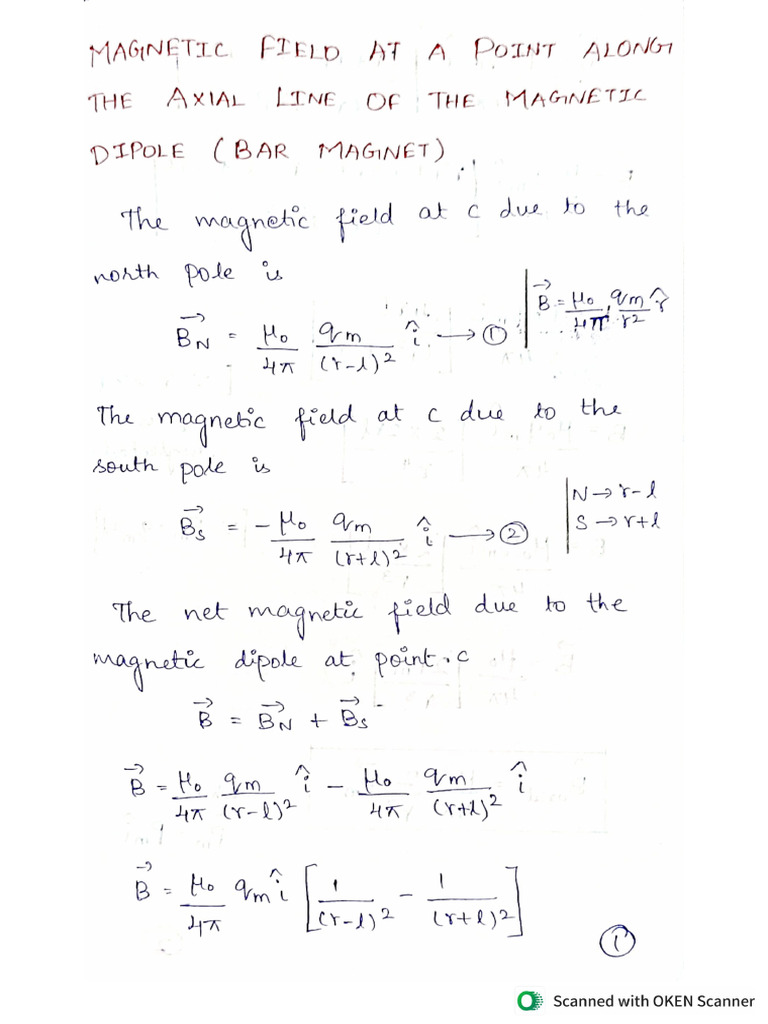 MAGNETIC FIELD AT A POINT ALONG
THE AXIAL LINE OF THE MAGNETIC
DIPOLE (BAR MAGNET)
The magnetic field at c due to the
north pole is
B⃗_N = μ₀/4π q_m/(r-l)² î → ① | B⃗ = μ₀/4π, q_m/r² r̂
The magnetic field at c due to the
south pole is
B⃗_S = -μ₀/4π q_m/(r+l)² î → ②
N → r-l
S → r+l
The net magnetic field due to the
magnetic dipole at point c
B⃗ = B⃗_N + B⃗_S
B⃗ = μ₀/4π q_m/(r-l)² î - μ₀/4π q_m/(r+l)² î
B⃗ = μ₀/4π q_m î [1/(r-l)² - 1/(r+l)²]
①
Scanned with OKEN Scanner